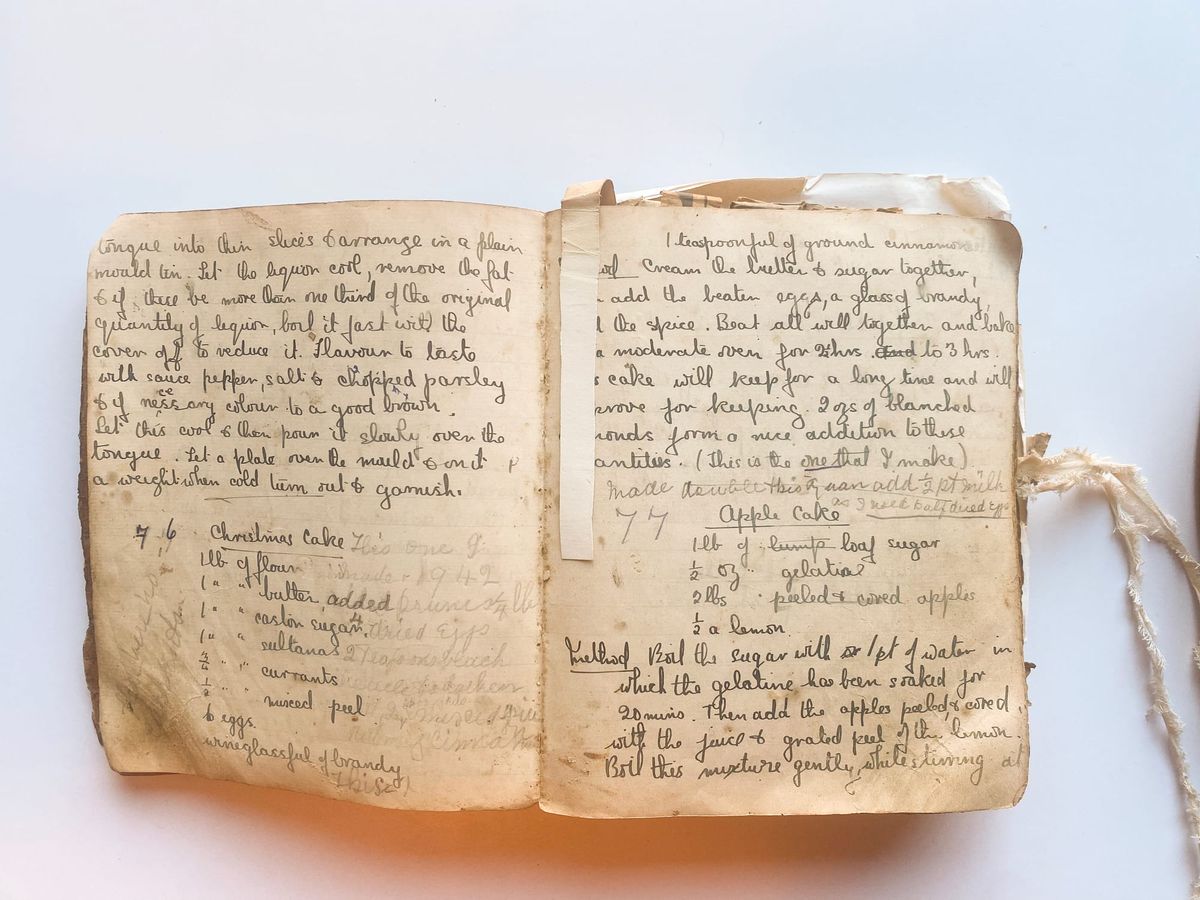 tongue into thin slices & arrange in a plain
mould tin. Let the liquor cool, remove the fat
& if there be more than one third of the original
quantity of liquor, boil it fast with the
cover off to reduce it. Flavour to taste
with sauce pepper, salt & chopped parsley
& if nessary colour to a good brown.
ce
Let this cool & then pour it slowly over the
tongue. Let a plate over the mould & on it
a weight when cold turn out & garnish.
76 Christmas Cake This one I
1 lb of flour made 1942
1 " " butter, added prunes ¼ lb
1 " " castor sugar, 4 dried eggs
1 " " sultanas 2 teaspoons each
¾ " " currants
½ " " mixed peel
6 eggs.
wineglassful of brandy
this
1 teaspoonful of ground cinnamon
Cream the butter & sugar together,
add the beaten eggs, a glass of brandy,
the spice. Beat all well together and bake
a moderate oven for 2½ hrs. and to 3 hrs.
cake will keep for a long time and will
prove for keeping. 2 ozs of blanched
monds form a nice addition to these
antities. (This is the one that I make)
made double this quan add ½ pt milk
as I used half dried eggs
77 Apple Cake
1 lb of lump loaf sugar
½ oz " gelatine
2 lbs " peeled & cored apples
½ a lemon.
Method Boil the sugar with or 1 pt of water in
which the gelatine has been soaked for
20 mins. Then add the apples peeled & cored,
with the juice & grated peel of the lemon.
Boil this mixture gently, while stirring at